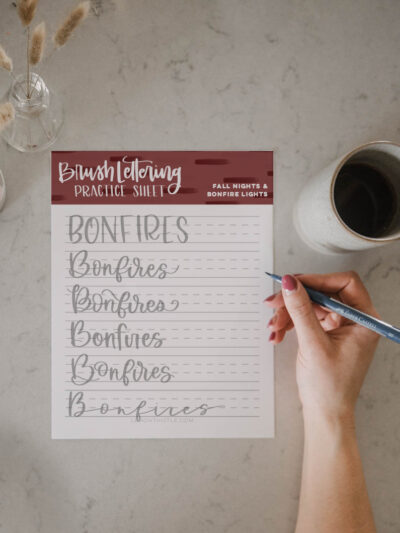 Brush Lettering
PRACTICE SHEET
FALL NIGHTS &
BONFIRE LIGHTS
BONFIRES
Bonfires
Bonfires
Bonfires
Bonfires
Bonfires